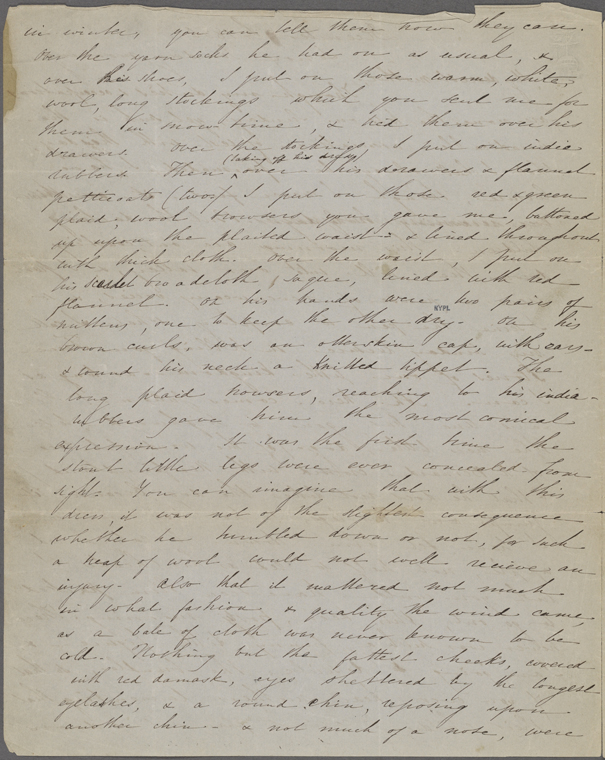 in winter, you can tell them now they can.
Over the yarn socks he had on as usual, &
over his shoes, I put on those warm, white,
wool, long stockings which you sent me for
them in snow time, & tied them over his
drawers. Over the stockings, I put on india
rubbers. Then (taking off his drefs) over his drawers & flannel
petticoats (two) I put on those red & green
plaid, wool trowsers you gave me, buttoned
up upon the plaited waist – & lined throughout
with thick cloth. Over the waist, I put on
his scarlet broadcloth saque, lined with red
flannel. On his hands were two pairs of
NYPL
mittens, one to keep the other dry. On his
brown curls, was an otterskin cap, with ears –
& round his neck a knitted tippet. The
long plaid trowsers, reaching to his india –
rubbers gave him the most comical
expression. It was the first time the
stout little legs were ever concealed from
sight. You can imagine that with this
dress, it was not of the slightest consequence
whether he tumbled down or not, for such
a heap of wool could not well recieve an
injury. Also that it mattered not much
in what fashion & quality the wind came,
as a bale of cloth was never known to be
cold. Nothing but the fattest cheeks, covered
with red damask, eyes sheltered by the longest
eyelashes, & a round chin, reposing upon
another chin – & not much of a nose, were